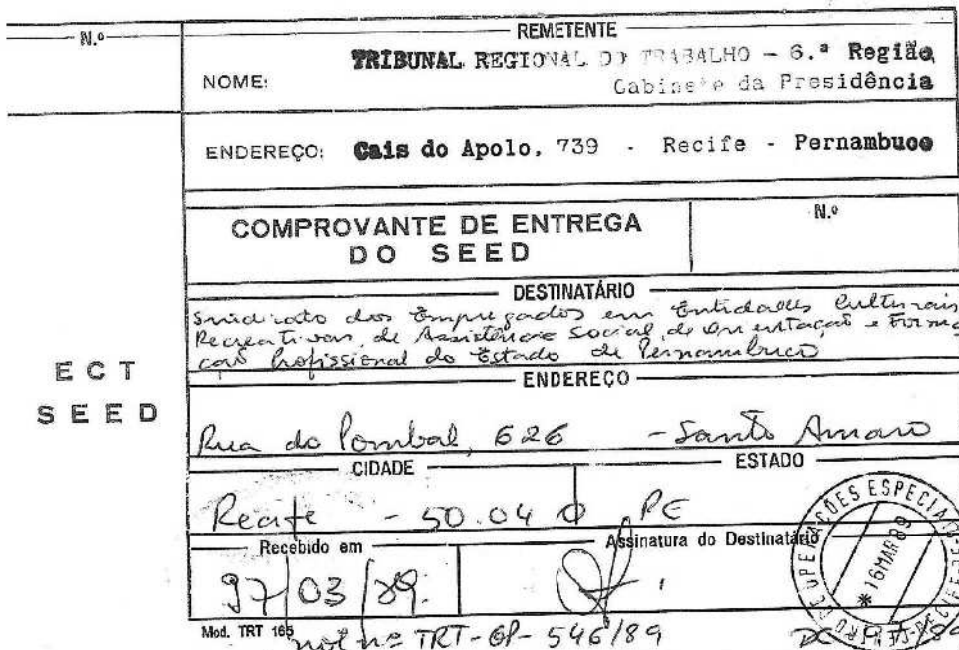 N.º
REMETENTE
NOME: TRIBUNAL REGIONAL DO TRABALHO - 6.ª Região
Gabinete da Presidência
ENDEREÇO: Cais do Apolo, 739 - Recife - Pernambuco
COMPROVANTE DE ENTREGA
DO SEED
N.º
DESTINATÁRIO
Sindicato dos Empregados em Entidades Culturais
Recreativas, de Assistência Social, de Orientação e Forma
ção Profissional do Estado de Pernambuco
ECT
SEED
ENDEREÇO
Rua do Pombal, 626 - Santo Amaro
CIDADE
ESTADO
Recife - 50.040
PE
Recebido em
Assinatura do Destinatário
/03/89.
ÕES ESPECIA
*16MAR89
Mod. TRT 165
not nº TRT-GP-546/89